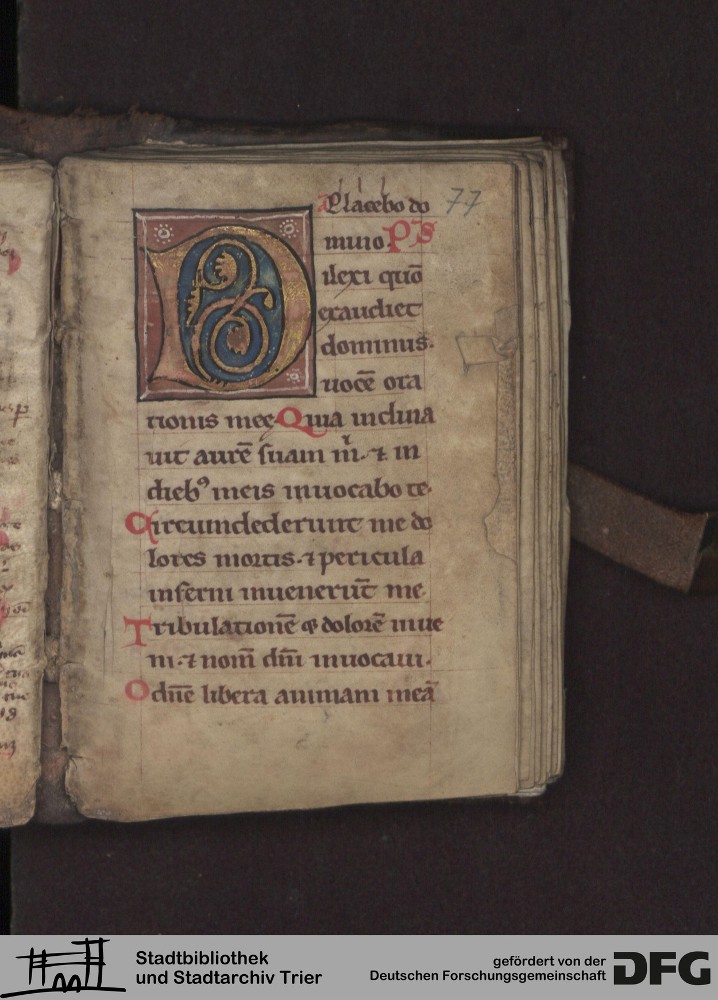 A Placebo do
77
mino. PS
D ilexi quō
exaudiet
dominus.
uocē ora
tionis meę Quia inclina
uit aurē suam m̄. ⁊ in
dieb⁹ meis inuocabo te.
Circumdederunt me do
lores mortis. ⁊ pericula
inferni inuenerūt me.
Tribulationē ⁊ dolorē inue
ni. ⁊ nom̄ dn̄i inuocaui.
O dn̄e libera animam meā
Stadtbibliothek
und Stadtarchiv Trier
gefördert von der
Deutschen Forschungsgemeinschaft
DFG